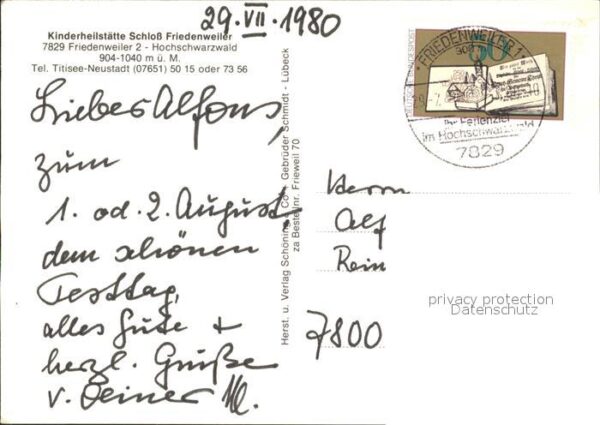 29. VII. 1980
Kinderheilstätte Schloß Friedenweiler
7829 Friedenweiler 2 - Hochschwarzwald
904-1040 m ü. M.
Tel. Titisee-Neustadt (07651) 50 15 oder 73 56
Lieber Alfons,
zum
1. od. 2. August,
dem schönen
Festtag,
alles Gute +
herzl. Grüße
v. Deiner M.
Herst. u. Verlag Schöning & Co + Gebrüder Schmidt - Lübeck
za Bestellnr. Frieweil 70
DEUTSCHE BUNDESPOST
50
FRIEDENWEILER 1
Ihr Ferienziel
im Hochschwarzwald
7829
Herrn
Alf
Rein
7800
privacy protection
Datenschutz